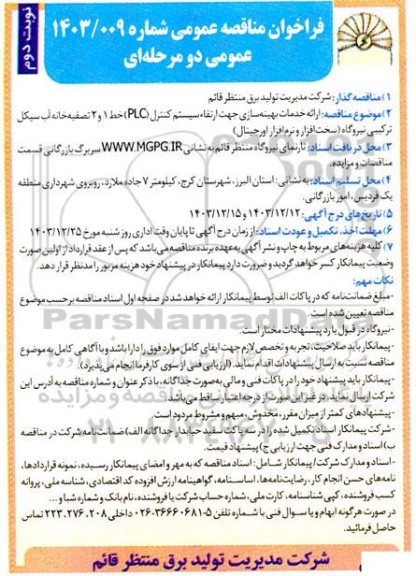 نوبت دوم
فراخوان مناقصه عمومی شماره ۱۴۰۳/۰۰۹
عمومی دو مرحله‌ای
۱) مناقصه گذار: شرکت مدیریت تولید برق منتظر قائم
۲) موضوع مناقصه: ارائه خدمات بهینه‌سازی جهت ارتقاء سیستم کنترل (PLC) خط ۱ و ۲ تصفیه‌خانه آب سیکل
ترکیبی نیروگاه (سخت افزار و نرم افزار اورجینال)
۳) محل دریافت اسناد: تارنمای نیروگاه منتظر قائم به نشانی WWW.MGPG.IR سربرگ بازرگانی قسمت
مناقصات و مزایده.
۴) محل تسلیم اسناد: به نشانی: استان البرز، شهرستان کرج، کیلومتر ۷ جاده ملارد، روبروی شهرداری منطقه
یک فردیس، امور بازرگانی.
۵) تاریخ‌های درج آگهی: ۱۴۰۳/۱۲/۱۲ و ۱۴۰۳/۱۲/۱۵
۶) مهلت اخذ، تکمیل و عودت اسناد: از زمان درج آگهی تا پایان وقت اداری روز شنبه مورخ ۱۴۰۳/۱۲/۲۵
۷) کلیه هزینه‌های مربوط به چاپ و نشر آگهی به عهده برنده مناقصه می‌باشد که پس از عقد قرارداد از اولین صورت
وضعیت پیمانکار کسر خواهد گردید و ضرورت دارد پیمانکار در پیشنهاد خود هزینه مزبور را مدنظر قرار دهد.
نکات مهم:
-مبلغ ضمانت‌نامه که در پاکات الف توسط پیمانکار ارائه خواهد شد در صفحه اول اسناد مناقصه برحسب موضوع
مناقصه تعیین شده است.
-نیروگاه در قبول یا رد پیشنهادات مختار است.
-پیمانکار باید صلاحیت، تجربه و تخصص لازم جهت ایفای کامل موارد فوق را دارا باشد و با آگاهی کامل به موضوع
مناقصه نسبت به ارسال پیشنهادات اقدام نماید. (ارزیابی فنی از سوی کارفرما انجام می‌پذیرد).
-پیمانکار باید پیشنهاد خود را در پاکات فنی و مالی به صورت جداگانه، با ذکر عنوان و شماره مناقصه به آدرس این
شرکت ارسال نماید. در غیر این صورت از درجه اعتبار ساقط می‌باشد.
-پیشنهادهای کمتر از میزان مقرر، مخدوش، مبهم و مشروط مردود است.
-شرکت پیمانکار اسناد تکمیل شده را در سه پاکت سفید جدید و جداگانه الف) ضمانت‌نامه شرکت در مناقصه
ب) اسناد و مدارک فنی جهت ارزیابی ج) پیشنهاد قیمت.
-اسناد و مدارک شرکت/پیمانکار شامل: اسناد مناقصه که به مهر و امضای پیمانکار رسیده، نمونه قراردادها،
نامه‌های حسن انجام کار، رضایت‌نامه‌ها، اساسنامه، گواهینامه ارزش افزوده کد اقتصادی، شناسه ملی، پروانه
کسب فروشنده، کپی شناسنامه، کارت ملی، شماره حساب شرکت یا فروشنده، نام بانک و شماره شبا و ...
در صورت هرگونه ابهام و یا سوال فنی با شماره تلفن ۵-۰۲۶-۳۶۶۶۰۶۸۱ داخلی ۲۰۸، ۲۷۶، ۲۲۳ تماس
حاصل فرمائید.
ParsNamadData
شرکت مدیریت تولید برق منتظر قائم